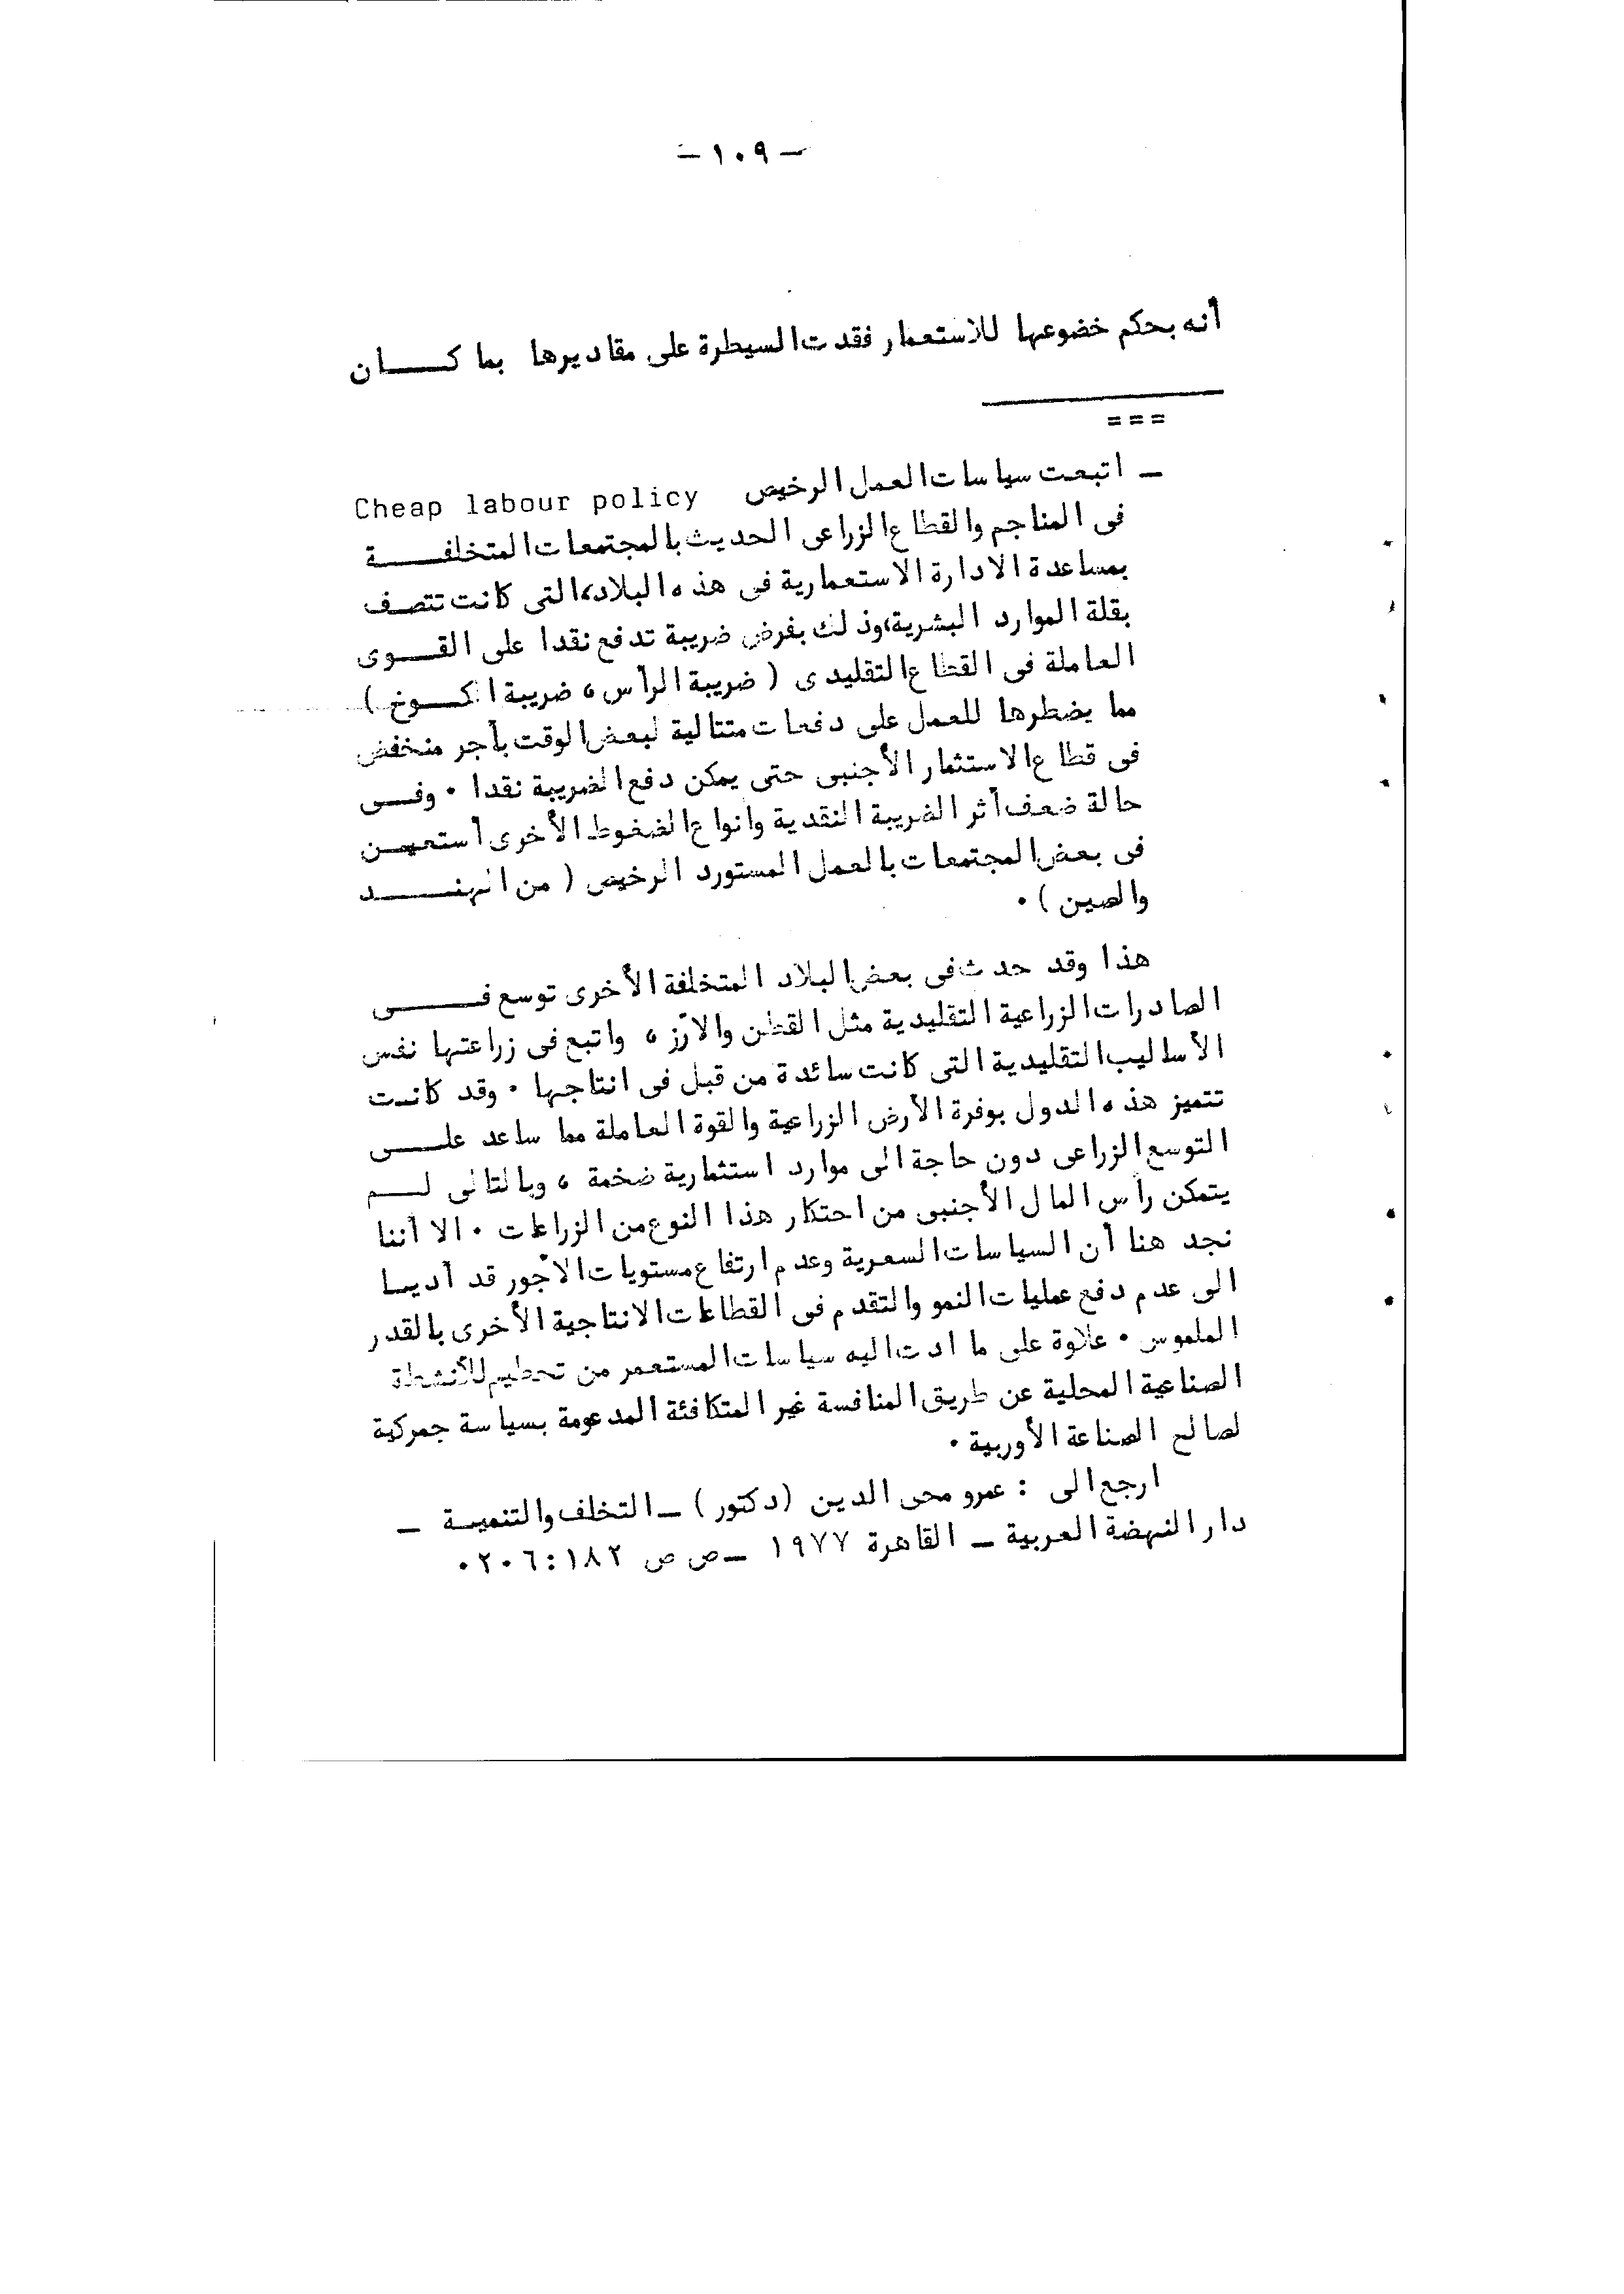 - ١٠٩ -
أنه بحكم خضوعها للاستعمار فقدت السيطرة على مقاديرها بما كـــــان
===
ـ اتبعت سياسات العمل الرخيص Cheap labour policy
فى المناجم والقطاع الزراعى الحديث بالمجتمعات المتخلفـــــة
بمساعدة الادارة الاستعمارية فى هذه البلاد، التى كانت تتصف
بقلة الموارد البشرية، وذلك بفرض ضريبة تدفع نقدا على القــــوى
العاملة فى القطاع التقليدى ( ضريبة الرأس ، ضريبة الكـــوخ )
مما يضطرها للعمل على دفعات متتالية لبعض الوقت بأجر منخفض
فى قطاع الاستثمار الأجنبى حتى يمكن دفع الضريبة نقدا . وفــى
حالة ضعف أثر الضريبة النقدية وانواع الضغوط الأخرى أستعيــن
فى بعض المجتمعات بالعمل المستورد الرخيص ( من الهنـــــد
والصين ) .
هذا وقد حدث فى بعض البلاد المتخلفة الأخرى توسع فـــــى
الصادرات الزراعية التقليدية مثل القطن والأرز ، واتبع فى زراعتها نفس
الأساليب التقليدية التى كانت سائدة من قبل فى انتاجها . وقد كانت
تتميز هذه الدول بوفرة الأرض الزراعية والقوة العاملة مما ساعد علـــى
التوسع الزراعى دون حاجة الى موارد استثمارية ضخمة ، وبالتالى لـــم
يتمكن رأس المال الأجنبى من احتكار هذا النوع من الزراعات . الا أننا
نجد هنا أن السياسات السعرية وعدم ارتفاع مستويات الأجور قد أديـا
الى عدم دفع عمليات النمو والتقدم فى القطاعات الانتاجية الأخرى بالقدر
الملموس . علاوة على ما ادت اليه سياسات المستعمر من تحطيم للأنشطة
الصناعية المحلية عن طريق المنافسة غير المتكافئة المدعومة بسياسة جمركية
لصالح الصناعة الأوربية .
ارجع الى : عمرو محى الدين (دكتور) ـ التخلف والتنميـة ـ
دار النهضة العربية ـ القاهرة ١٩٧٧ ـ ص ص ١٨٢ : ٢٠٦ .